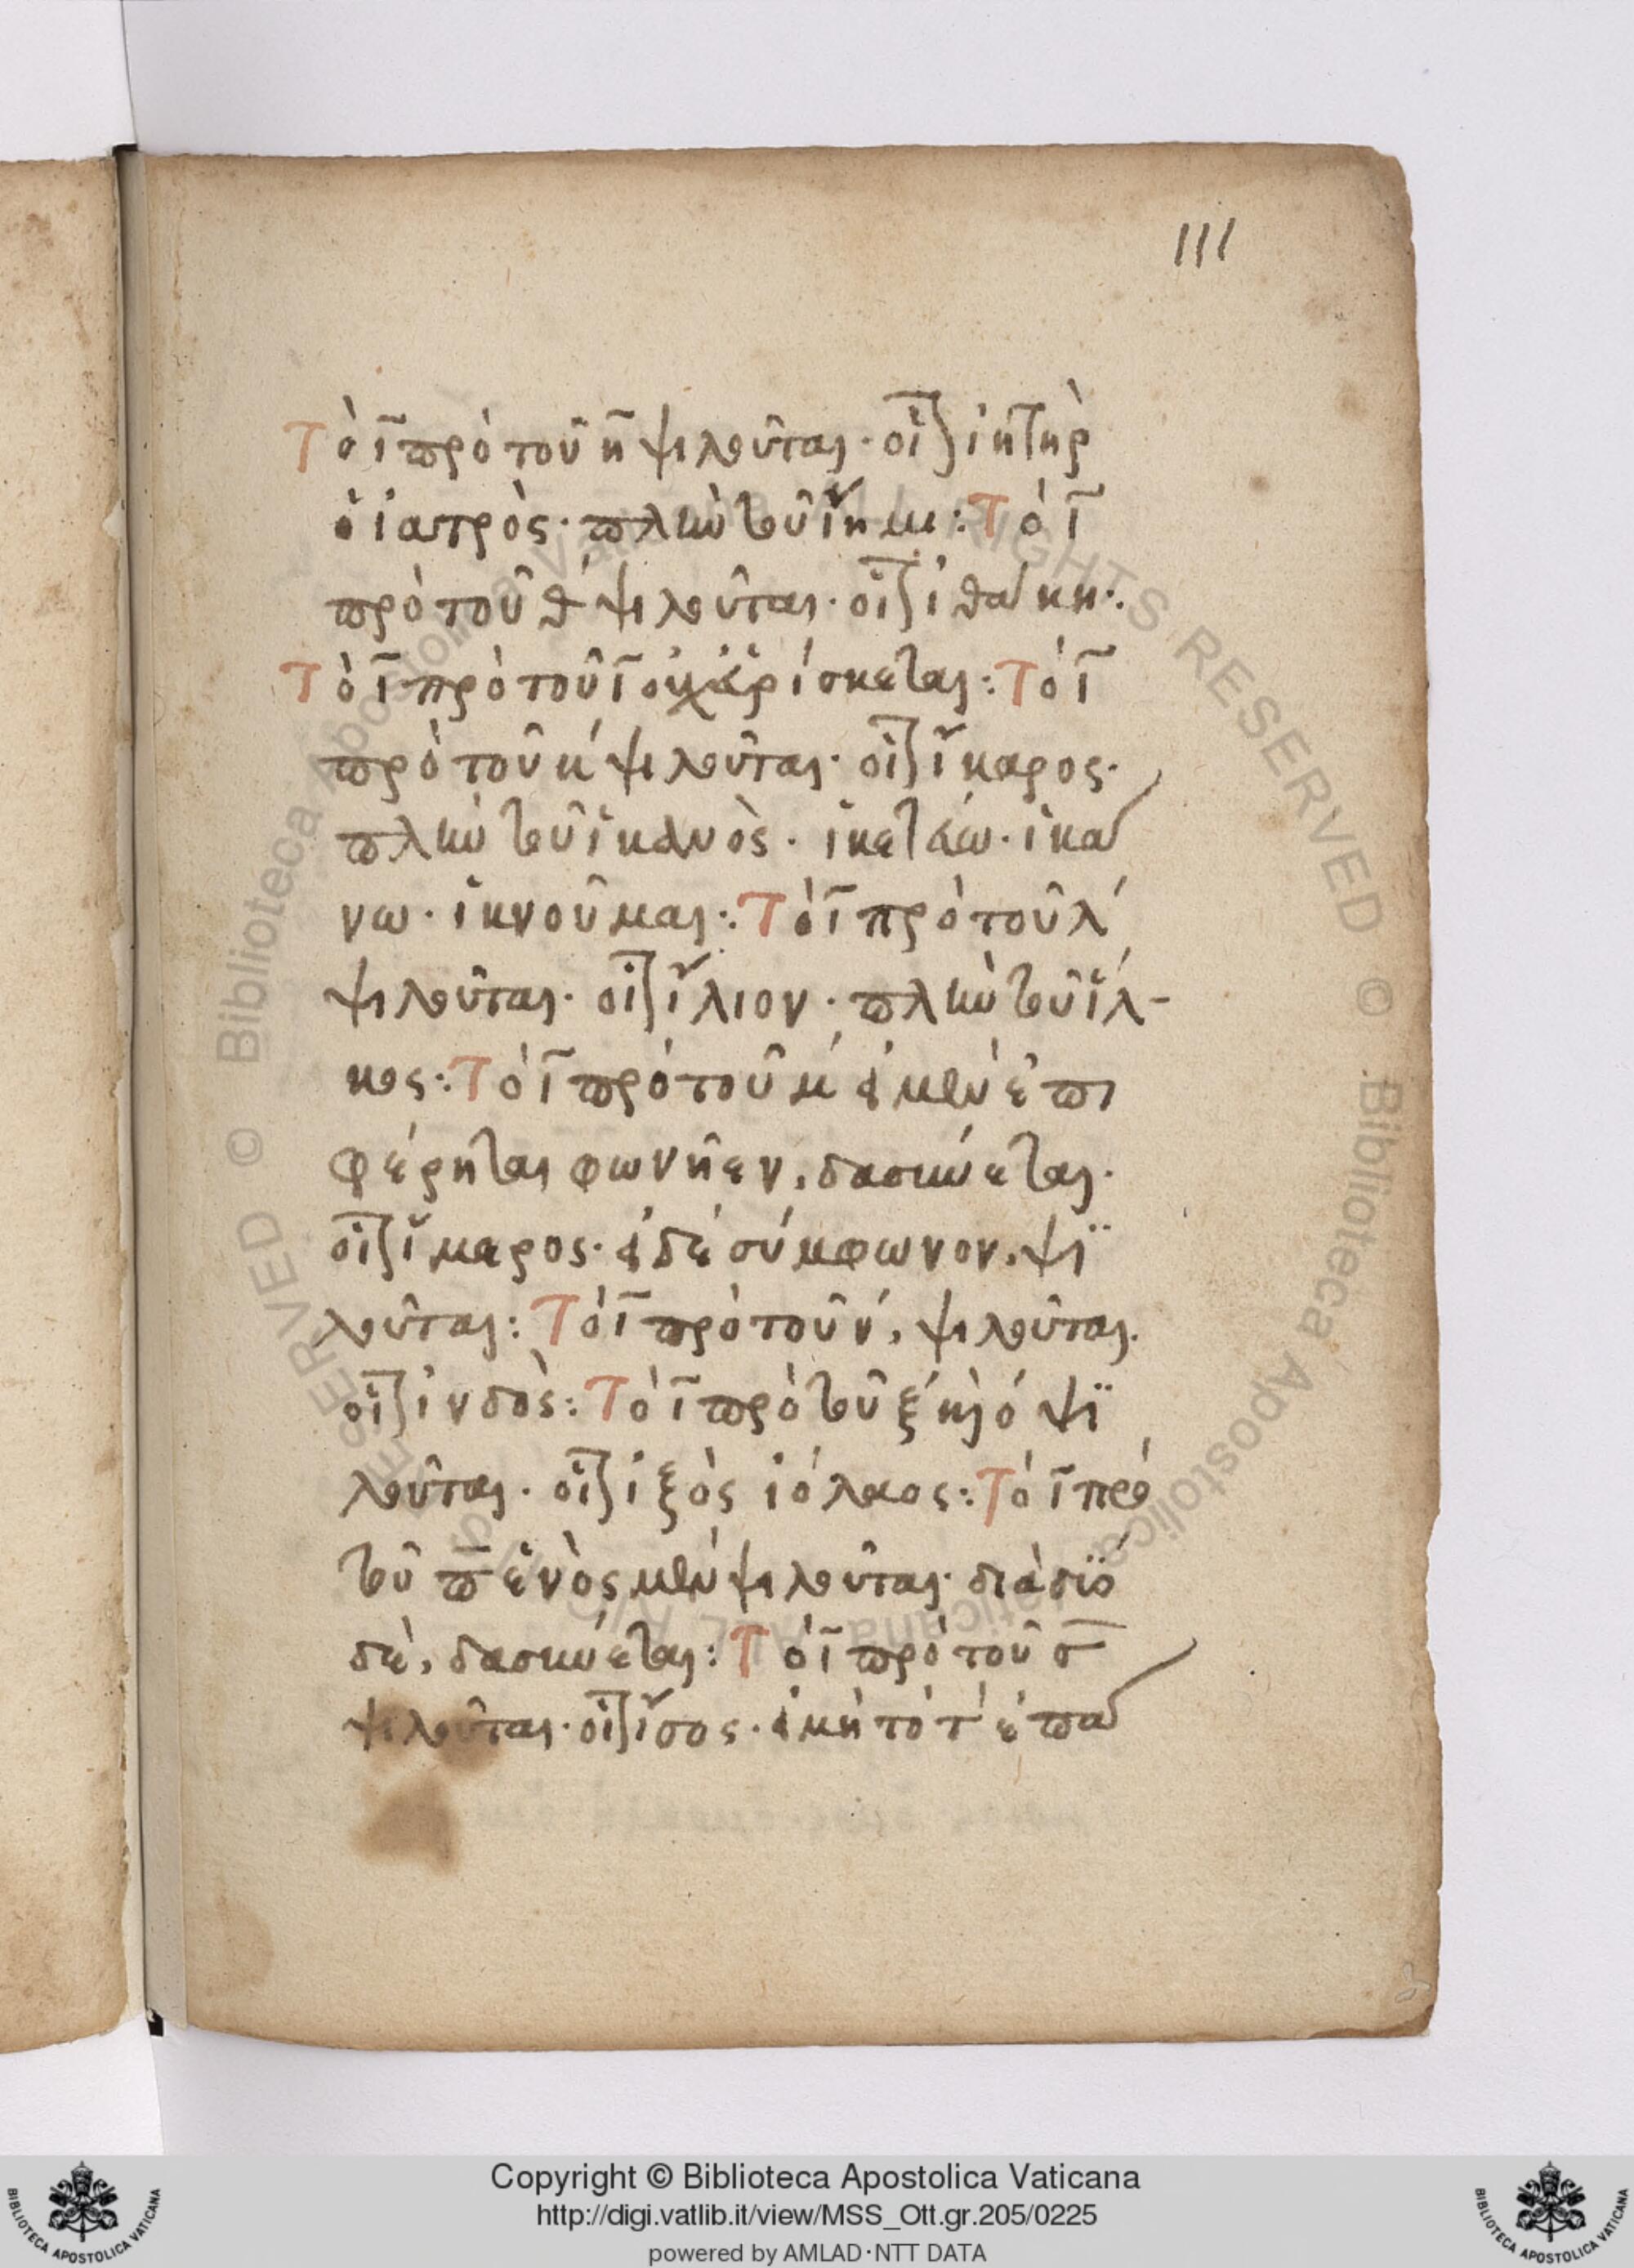 111
Τὸ ῑ πρὸ τοῦ η̄ ψιλοῦται· οἷον ἰητὴρ
ὁ ἰατρὸς· πλὴν τοῦ ἵημι: Τὸ ῑ
πρὸ τοῦ θ́ ψιλοῦται· οἷον ἰθάκη:
Τὸ ῑ πρὸ τοῦ ῑ οὐχ εὑρίσκεται: Τὸ ῑ
πρὸ τοῦ κ́ ψιλοῦται· οἷον ἴκαρος·
πλὴν τοῦ ἱκανὸς· ἱκετεύω· ἱκά
νω· ἱκνοῦμαι: Τὸ ῑ πρὸ τοῦ λ́
ψιλοῦται· οἷον ἴλιον· πλὴν τοῦ ἵλ-
κος: Τὸ ῑ πρὸ τοῦ μ́ εἰ μὲν ἐπι
φέρηται φωνῆεν, δασύνεται·
οἷον ἵμερος· εἰ δὲ σύμφωνον, ψι
λοῦται: Τὸ ῑ πρὸ τοῦ ν́, ψιλοῦται·
οἷον ἰνδὸς: Τὸ ῑ πρὸ τοῦ ξ́ καὶ ό ψι
λοῦται· οἷον ἰξὸς ἰόλαος: Τὸ ῑ πρὸ
τοῦ π̄ ἑνὸς μὲν ψιλοῦται· διὰ δύο
δὲ, δασύνεται: Τὸ ῑ πρὸ τοῦ σ̄
ψιλοῦται· οἷον ἴσος· εἰ μὴ τὸ τ̀ ἐπα
Copyright © Biblioteca Apostolica Vaticana
http://digi.vatlib.it/view/MSS_Ott.gr.205/0225
powered by AMLAD·NTT DATA